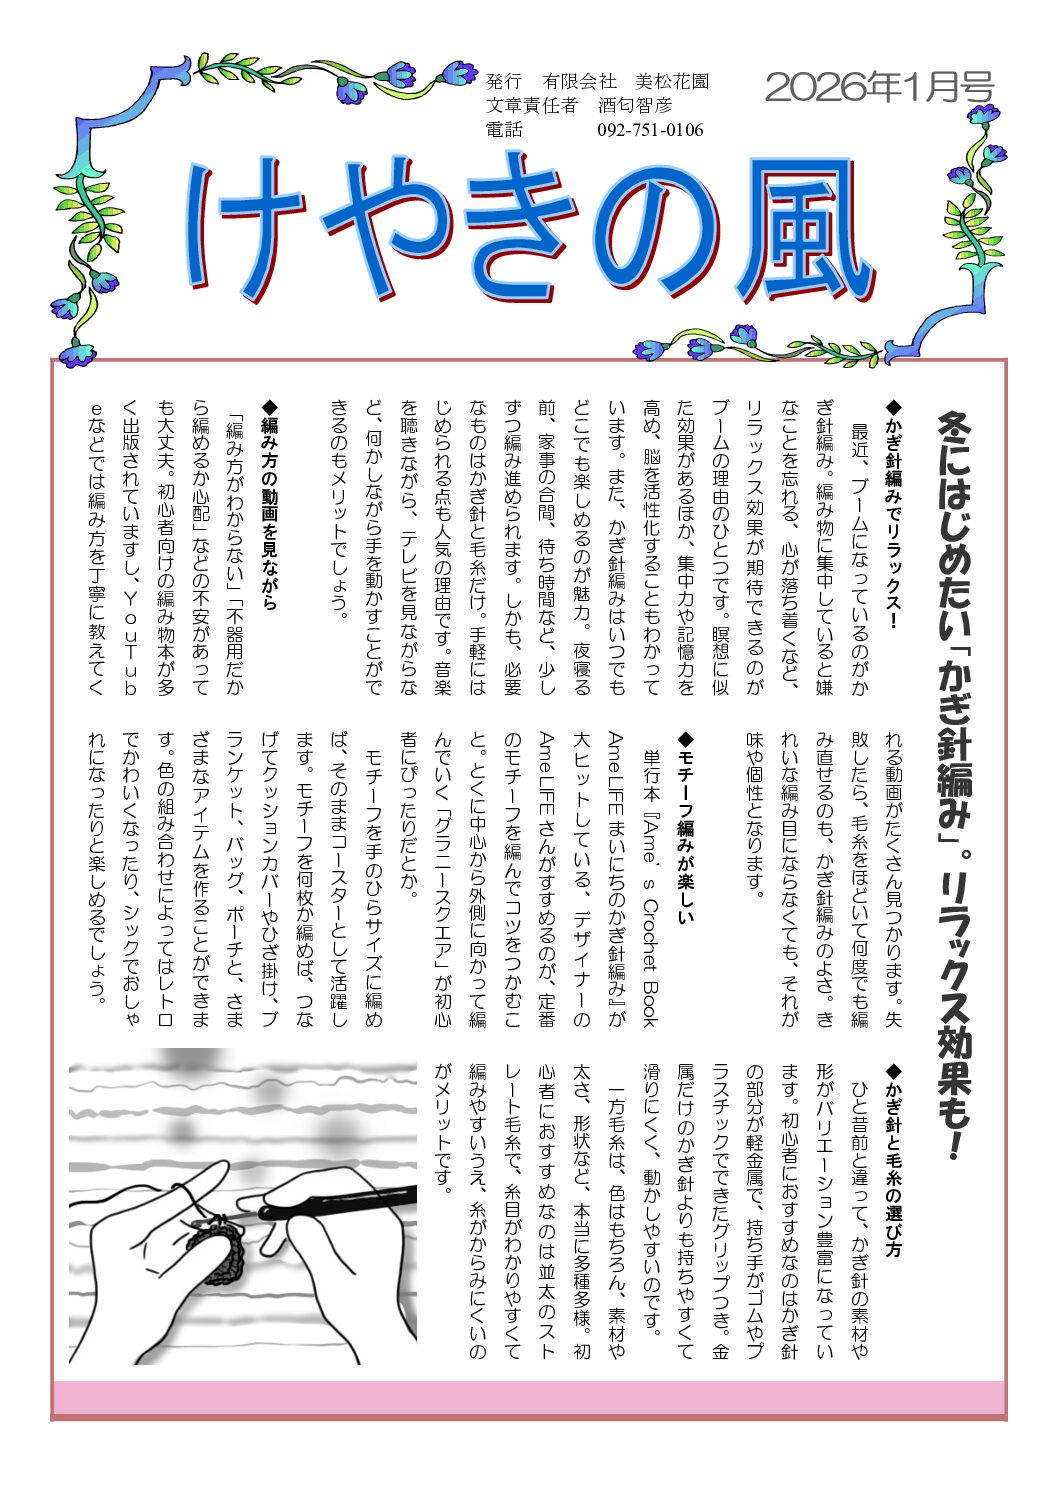 発行　有限会社　美松花園
文章責任者　酒匂智彦
電話　092-751-0106
2026年1月号
けやきの風
冬にはじめたい「かぎ針編み」。リラックス効果も！
◆かぎ針編みでリラックス！
最近、ブームになっているのがか
ぎ針編み。編み物に集中していると嫌
なことを忘れる、心が落ち着くなど、
リラックス効果が期待できるのが
ブームの理由のひとつです。瞑想に似
た効果があるほか、集中力や記憶力を
高め、脳を活性化することもわかって
います。また、かぎ針編みはいつでも
どこでも楽しめるのが魅力。夜寝る
前、家事の合間、待ち時間など、少し
ずつ編み進められます。しかも、必要
なものはかぎ針と毛糸だけ。手軽には
じめられる点も人気の理由です。音楽
を聴きながら、テレビを見ながらな
ど、何かしながら手を動かすことがで
きるのもメリットでしょう。
◆編み方の動画を見ながら
「編み方がわからない」「不器用だか
ら編めるか心配」などの不安があって
も大丈夫。初心者向けの編み物本が多
く出版されていますし、YouTub
eなどでは編み方を丁寧に教えてく
れる動画がたくさん見つかります。失
敗したら、毛糸をほどいて何度でも編
み直せるのも、かぎ針編みのよさ。き
れいな編み目にならなくても、それが
味や個性となります。
◆モチーフ編みが楽しい
単行本『Ame's Crochet Book
AmeLIFE まいにちのかぎ針編み』が
大ヒットしている、デザイナーの
AmeLIFE さんがすすめるのが、定番
のモチーフを編んでコツをつかむこ
と。とくに中心から外側に向かって編
んでいく「グラニースクエア」が初心
者にぴったりだとか。
モチーフを手のひらサイズに編め
ば、そのままコースターとして活躍し
ます。モチーフを何枚か編めば、つな
げてクッションカバーやひざ掛け、ブ
ランケット、バッグ、ポーチと、さま
ざまなアイテムを作ることができま
す。色の組み合わせによってはレトロ
でかわいくなったり、シックでおしゃ
れになったりと楽しめるでしょう。
◆かぎ針と毛糸の選び方
ひと昔前と違って、かぎ針の素材や
形がバリエーション豊富になってい
ます。初心者におすすめなのはかぎ針
の部分が軽金属で、持ち手がゴムやプ
ラスチックでできたグリップつき。金
属だけのかぎ針よりも持ちやすくて
滑りにくく、動かしやすいのです。
一方毛糸は、色はもちろん、素材や
太さ、形状など、本当に多種多様。初
心者におすすめなのは並太のスト
レート毛糸で、糸目がわかりやすくて
編みやすいうえ、糸がからみにくいの
がメリットです。